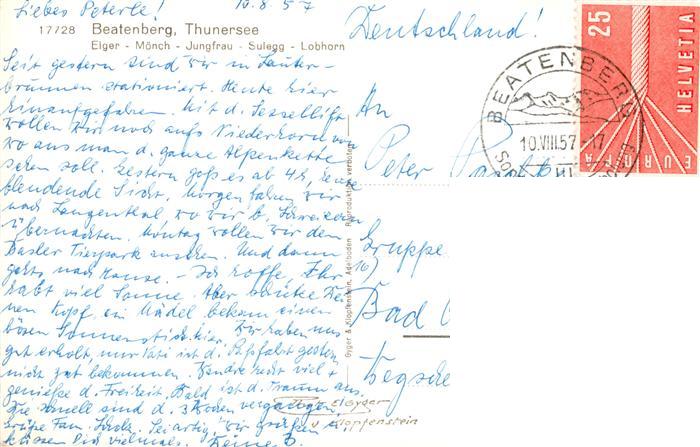 Liebes Peterle! 10.8.57
17728 Beatenberg, Thunersee
Eiger - Mönch - Jungfrau - Sulegg - Lobhorn
Seit gestern sind wir in Lauter-
brunnen stationiert. Heute hier
hinaufgefahren. Mit d. Sessellift
wollen wir noch aufs Niederhorn
wo aus man d. ganze Alpenkette
sehen soll. Gestern goß es ab 4h, heute
blendende Sicht. Morgen fahren wir
nach Langenthal, wo wir b.
übernachten. Montag wollen wir den
Basler Tierpark ansehen. Und dann
gehts nach Hause. - Ich hoffe, Ihr
habt viel Sonne. Aber schütze Dei-
nen Kopf, ein Mädel bekam einen
bösen Sonnenstich hier. Wir haben uns
gut erholt, nur ist d. Paßfahrt gestern
nicht gut bekommen. viel +
genieße d. Freiheit. Bald ist d. Traum aus.
Wie schnell sind d. 3 Wochen vergangen.
Fam. Sei artig, wir grüßen +
küssen Dich vielmals. Deine
Deutschland!
An
Peter
Gruppe
16
Bad
Gyger & Klopfenstein, Adelboden Reproduktion verboten
E. Gyger
v. Klopfenstein
BEATENBERG
10.VIII.57.-17
25
HELVETIA
EUROPA